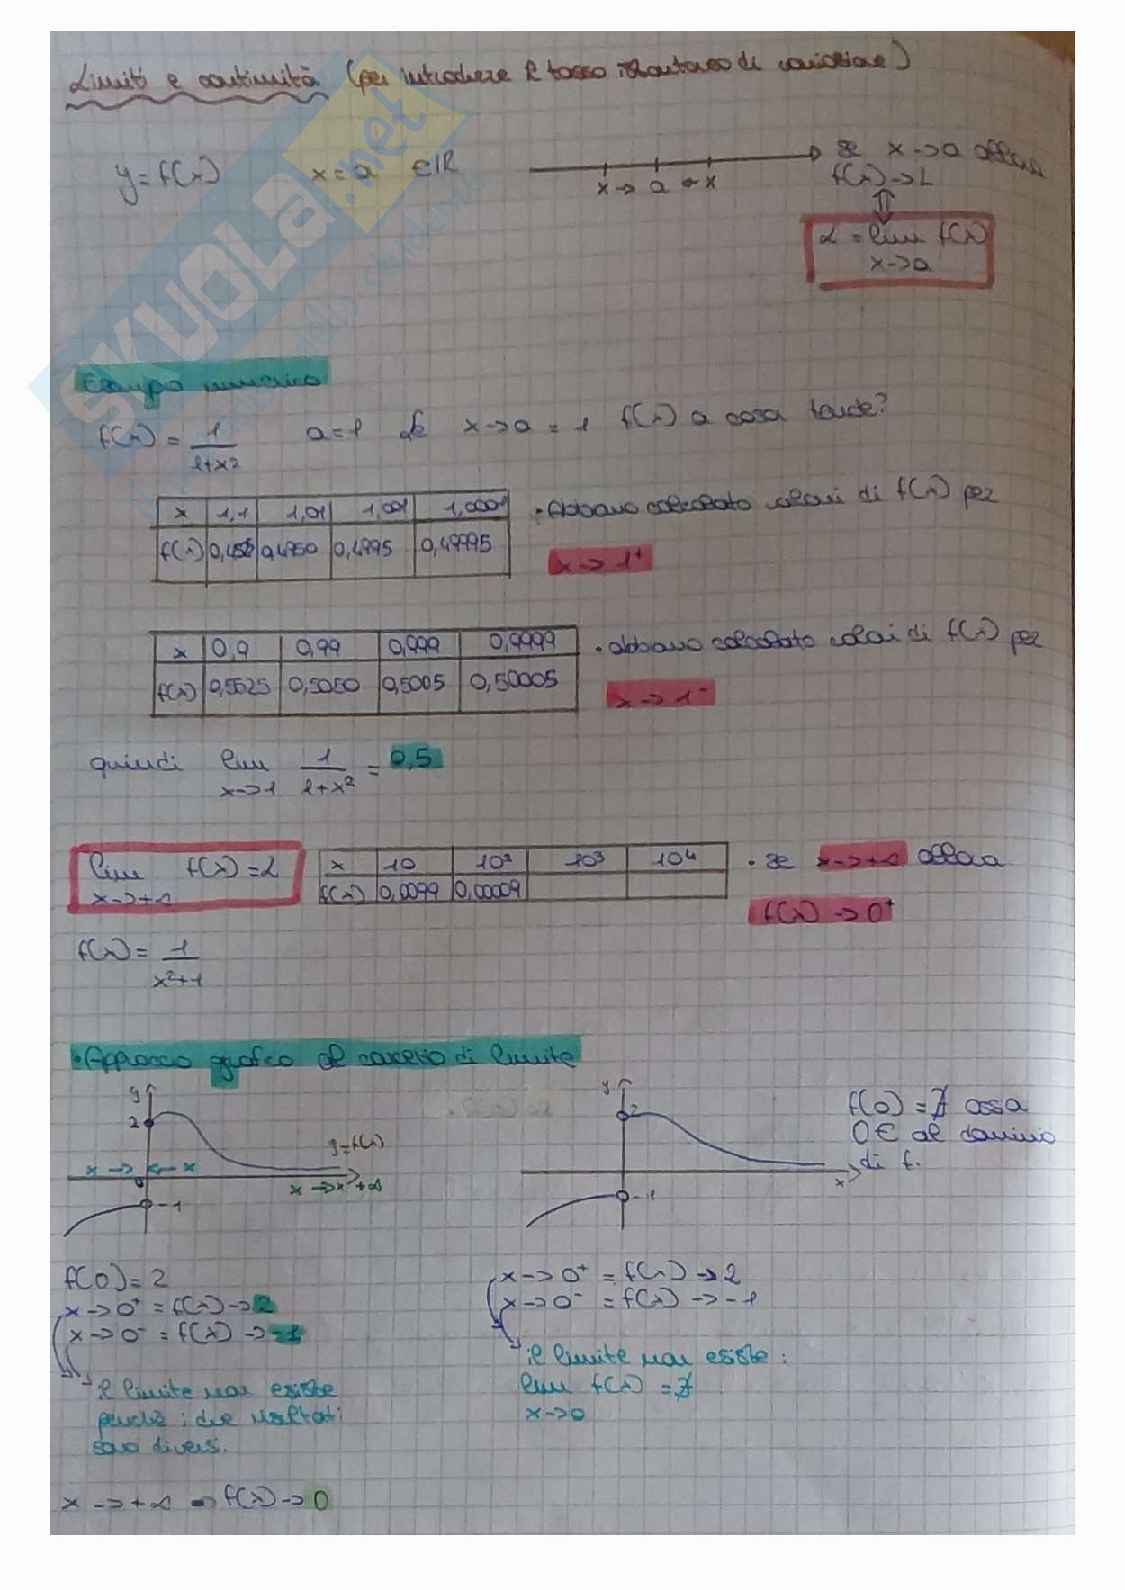 Limiti e continuità (per introdurre il tasso istantaneo di variazione)
y=f(x) x=a ∈ℝ
x→ a ←x
se x→a allora
f(x)→L
⇕
L = lim f(x)
x→a
SKUOLA.net
Esempio numerico
f(x) = 1/(1+x²) a=1 se x→a = 1 f(x) a cosa tende?
x | 1,1 | 1,01 | 1,001 | 1,0001
f(x) | 0,4950 | 0,4995 | 0,49995
• Abbiamo calcolato valori di f(x) per
x→1⁺
x | 0,9 | 0,99 | 0,999 | 0,9999
f(x) | 0,5525 | 0,5050 | 0,5005 | 0,50005
• abbiamo calcolato valori di f(x) per
x→1⁻
quindi lim x→1 1/(1+x²) = 0,5
lim f(x) = L
x→+∞
x | 10 | 10² | 10³ | 10⁴
f(x) | 0,0099 | 0,00009
• se x→+∞ allora
f(x)→0⁺
f(x) = 1/(x²+1)
• Approccio grafico al concetto di limite
y
2
y=f(x)
x→ ←x
0
x→+∞
x
-1
y
2
x
-1
f(0) = ∄ ossa
0∈ al dominio
di f.
f(0)=2
x→0⁺ = f(x)→2
x→0⁻ = f(x)→-1
il limite non esiste
perché i due risultati
sono diversi.
x→+∞ ⇒ f(x)→0
x→0⁺ = f(x)→2
x→0⁻ = f(x)→-1
il limite non esiste:
lim f(x) = ∄
x→0